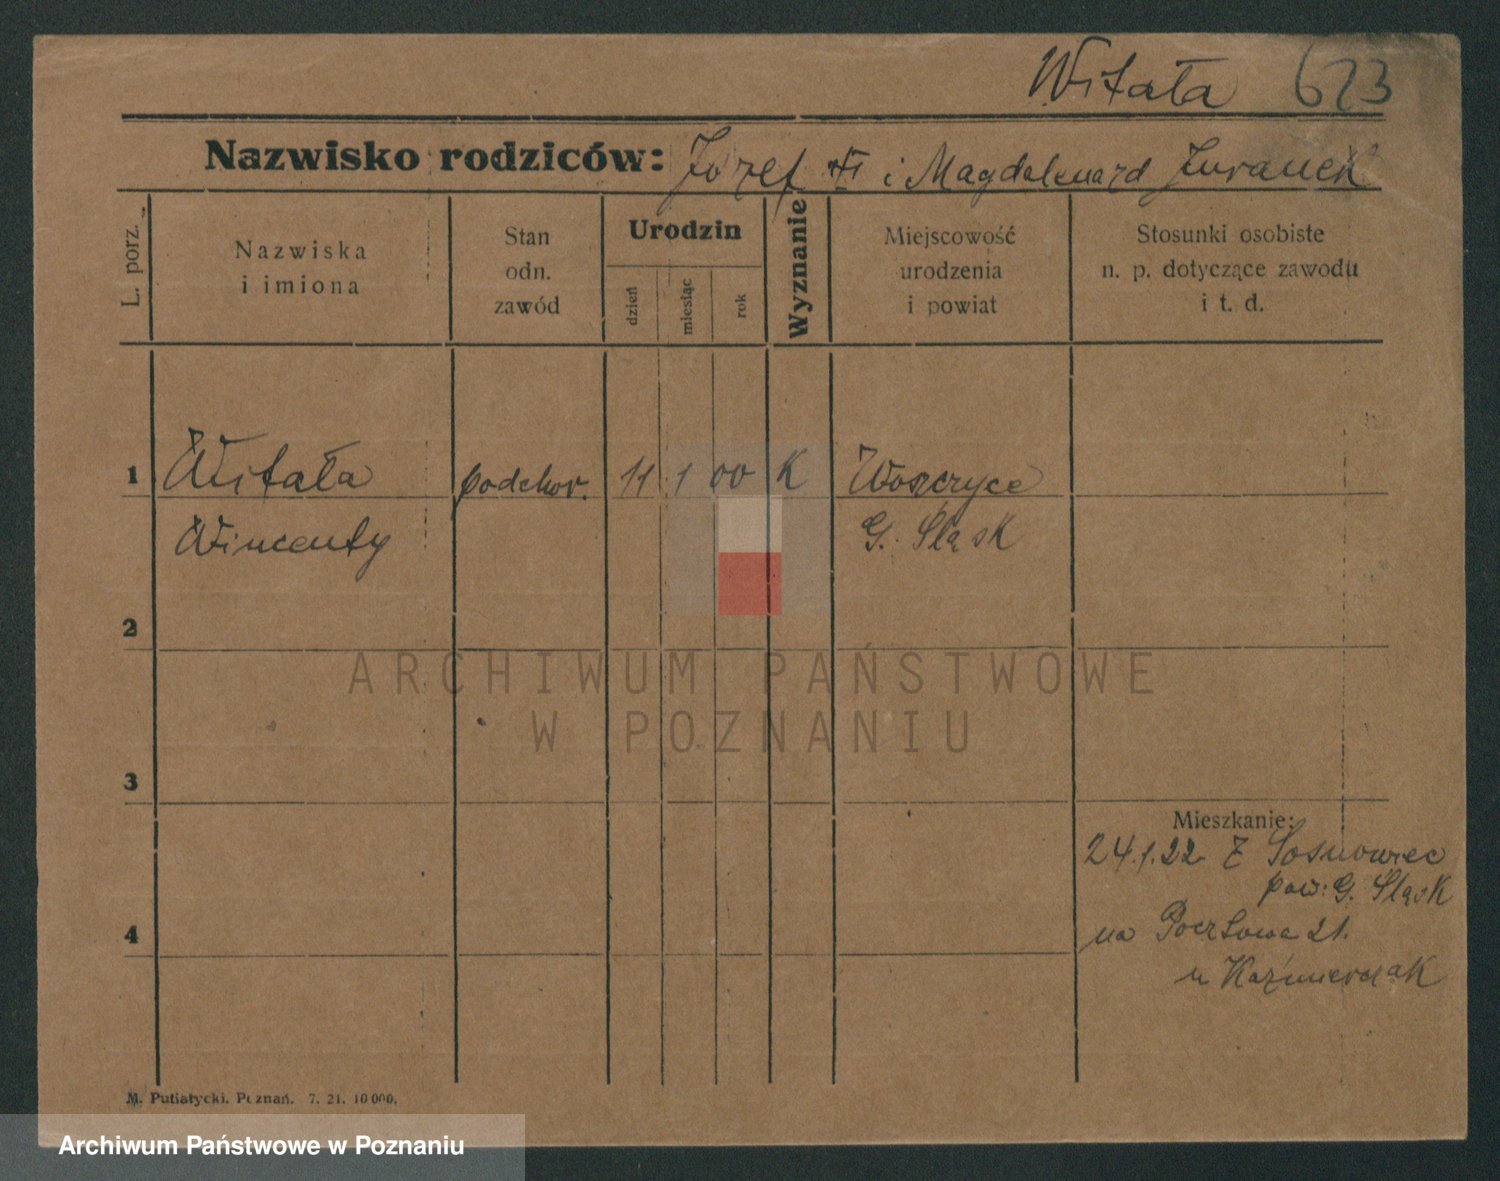 Witała 623
Nazwisko rodziców: Józef i Magdalena zd Juranek
L. porz.
Nazwiska
i imiona
Stan
odn.
zawód
Urodzin
dzień
miesiąc
rok
Wyznanie
Miejscowość
urodzenia
i powiat
Stosunki osobiste
n. p. dotyczące zawodu
i t. d.
1 Witała podchor. 11 1 00 K Woszczyce
Wincenty G. Śląsk
2
ARCHIWUM PAŃSTWOWE
W POZNANIU
3
Mieszkanie:
24.1.22 z Sosnowiec
pow: G. Śląsk
4
na Pocztowa 21.
u Kaźmierczak
M. Putiatycki. Poznań. 7. 21. 10 000.
Archiwum Państwowe w Poznaniu